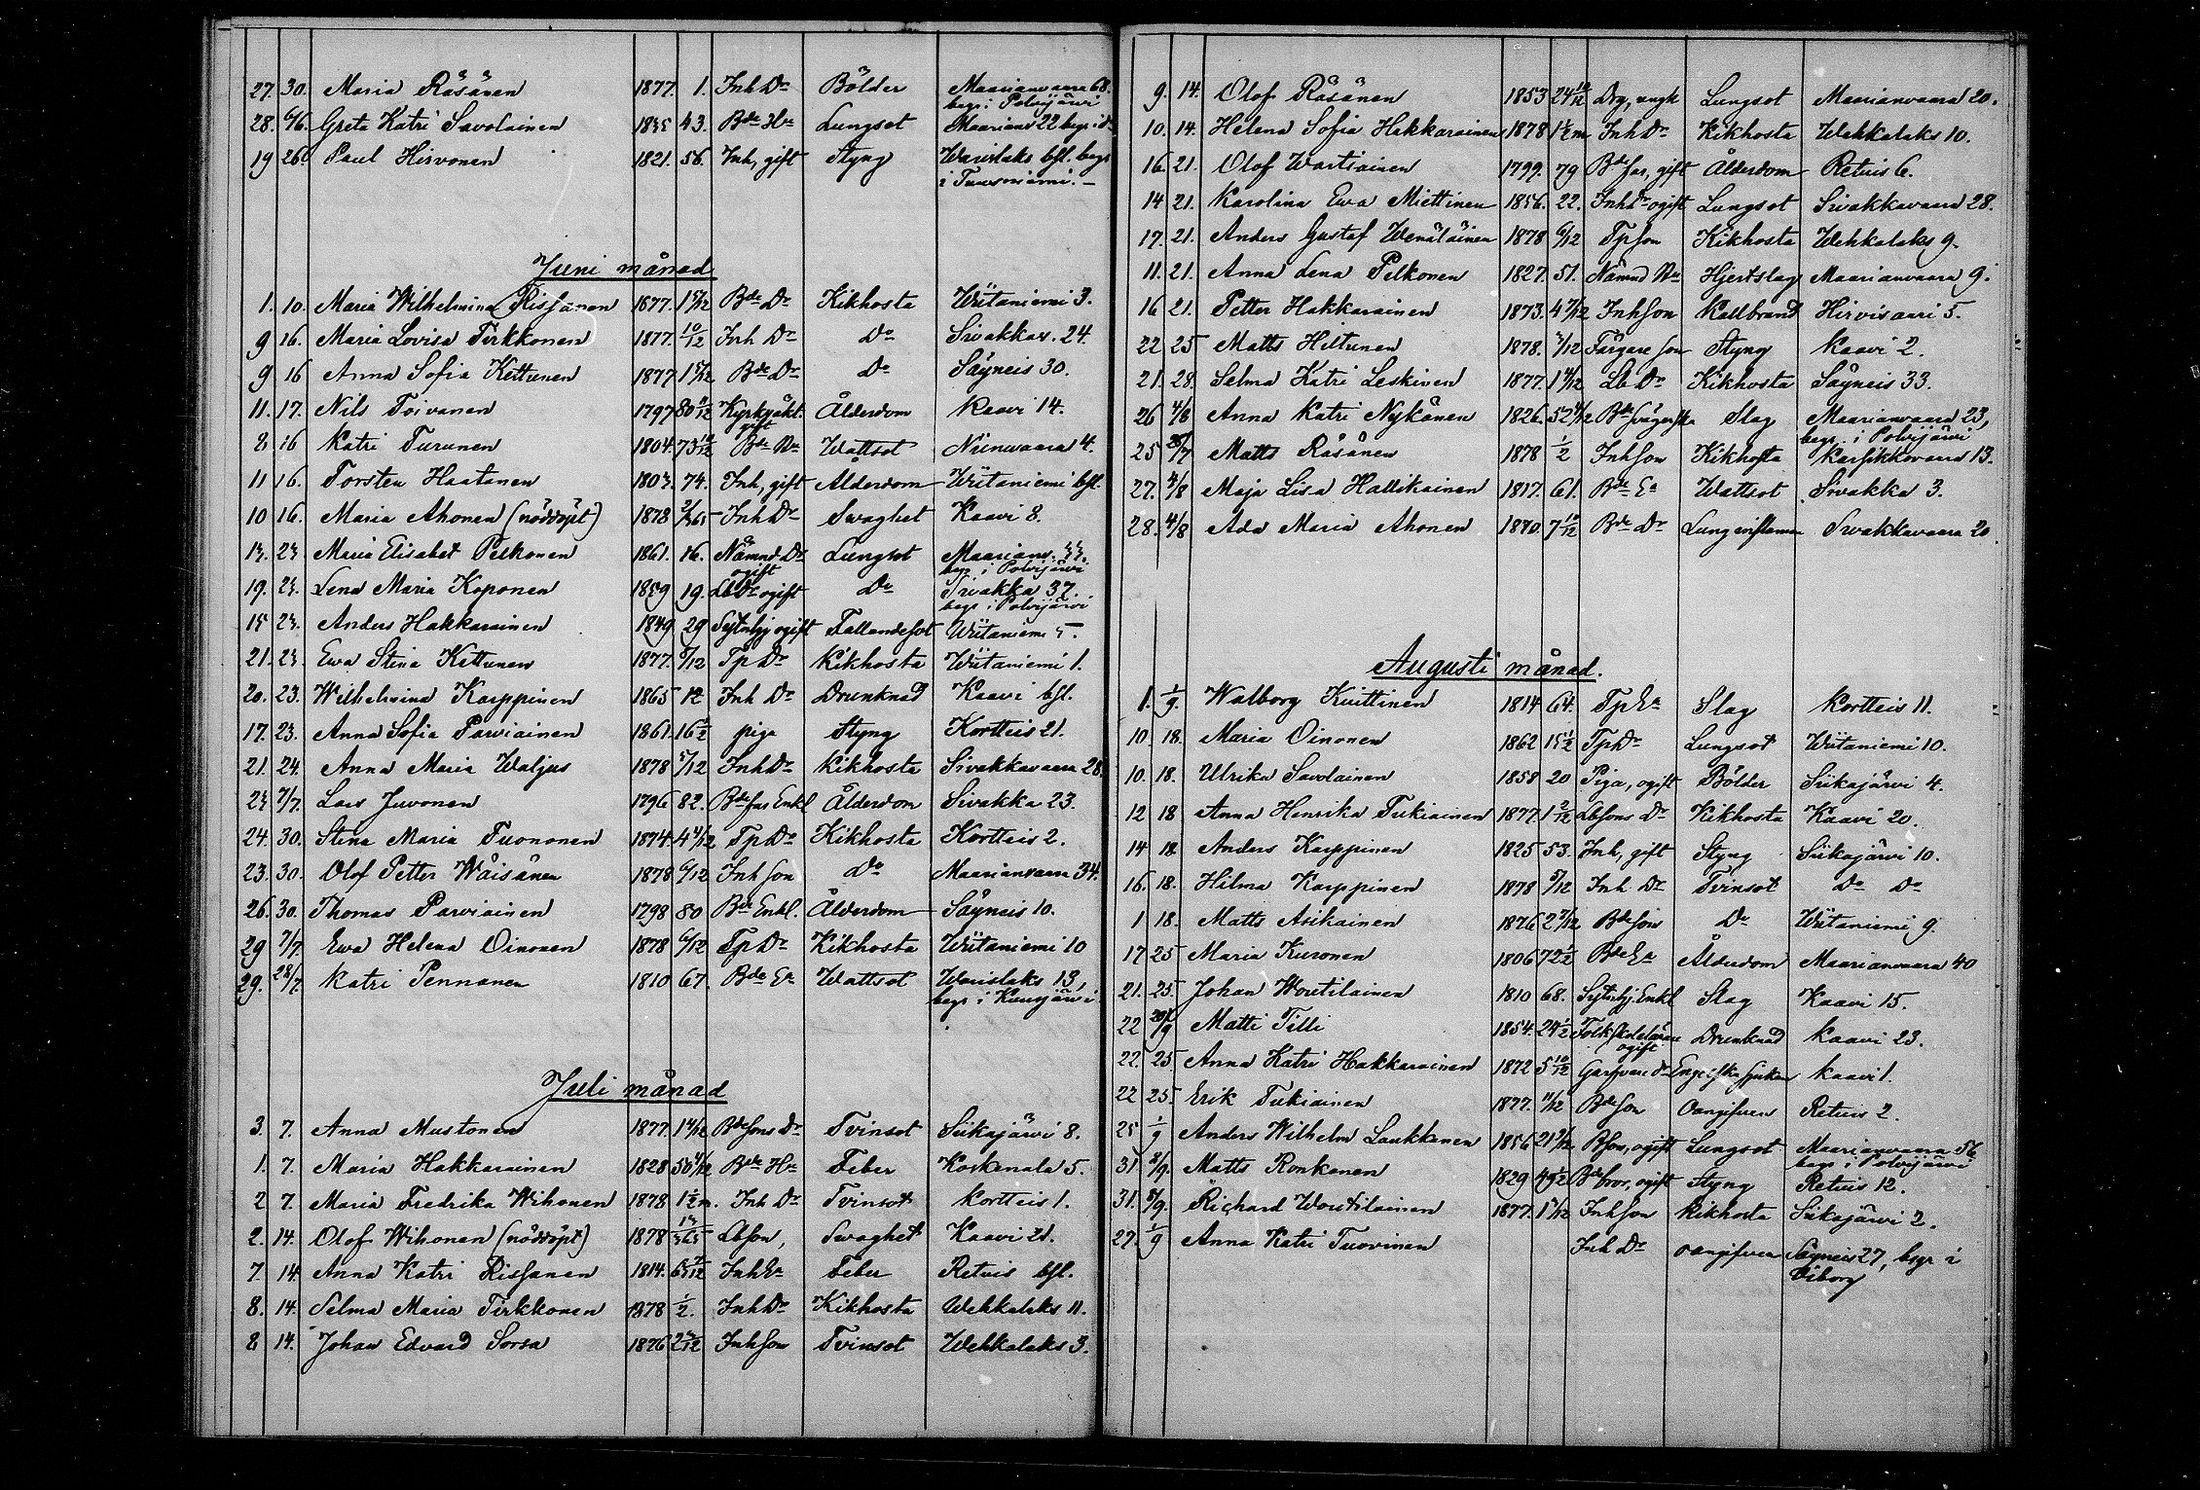 27. 30. Maria Räsänen 1877. 1. Inh Dr Bölder Maarianvaara 68.
begr. i Polvijärvi
28. 6/6. Greta Katri Savolainen 1835 43. Bde Hu Lungsot Maarianv 22 begr. i do
19 26. Paul Hirvonen 1821. 56. Inh, gift Styng Warislaks bfl. begr
i Tuusniemi. —
Juni månad
1. 10. Maria Wilhelmina Rissanen 1877. 1 5/12 Bde Dr Kikhosta Wiitaniemi 3.
9 16. Maria Lovisa Tirkkonen 1877. 10/12 Inh Dr Do Sivakkav. 24.
9 16 Anna Sofia Kettunen 1877 1 5/12 Bde Dr Do Säyneis 30.
11. 17. Nils Toivanen 1797 80 Kyrkväkt. Ålderdom Kaavi 14.
gift
8 16 Katri Turunen 1804. 73 10/12 Bde Wattsot Niinivaara 4.
11 16. Torsten Haatanen 1803. 74. Inh, gift Ålderdom Wiitaniemi bfl.
10 16. Maria Ahonen (nöddöpt) 1878 2/365 Inh Dr Svaghet Kaavi 8.
13. 23. Maria Elisabet Pelkonen 1861. 16. Nämnd Dr Lungsot Maarianv. 33.
ogift begr. i Polvijärvi
19. 23. Lena Maria Koponen 1859 19. Lb Dr ogift Do Sivakka 37.
begr. i Polvijärvi
15 23. Anders Hakkarainen 1849 29 Sytnhj ogift Fallandesot Wiitaniemi 5.
21. 23. Ewa Stina Kettunen 1877. 6/12 Tp Dr Kikhosta Wiitaniemi 1.
20. 23. Wilhelmina Karppinen 1865 12 Inh Dr Drunknad Kaavi bfl.
17. 23. Anna Sofia Parviainen 1861. 16 1/2 piga Styng Kortteis 21.
21. 24. Anna Maria Waljus 1878 5/12 Inh Dr Kikhosta Sivakkavaara 28.
23 7/7. Lars Juvonen 1796 82. Bde far Enkl Ålderdom Sivakka 23.
24. 30. Stina Maria Tuononen 1874. 4 4/12 Tp Dr Kikhosta Kortteis 2.
23. 30. Olof Petter Wäisänen 1878 6/12 Inh son Do Maarianvaara 34.
26. 30. Thomas Parviainen 1798 80 Bde Enkl. Ålderdom Säyneis 10.
29 7/7. Ewa Helena Oinonen 1878 6/12 Tp Dr Kikhosta Wiitaniemi 10
29. 28/7. Katri Pennanen 1810 67. Bde Ea Wattsot Warislaks 13,
begr i Kuusjärvi
Juli månad
3. 7. Anna Mustonen 1877. Bdesons Dr Tvinsot Siikajärvi 8.
1. 7. Maria Hakkarainen 1828 50 4/12 Bde Hu Feber Koskenala 5.
2 7. Maria Fredrika Wihonen 1878 1 1/2 m. Inh Dr Tvinsot Kortteis 1.
2. 14. Olof Wihonen (nöddöpt) 1878 Lb son, Svaghet Kaavi 21.
7. 14 Anna Katri Rissanen 1814. Inh Ea Feber Retuis bfl.
8. 14. Selma Maria Tirkkonen 1878 1/2. Inh Dr Kikhosta Wehkalaks 11.
8 14. Johan Edvard Sorsa 1876 Inh son Tvinsot Wehkalaks 3.
9. 14. Olof Räsänen 1853 24 10/12 Drg, ungk Lungsot Maarianvaara 20.
10. 14. Helena Sofia Hakkarainen 1878 1 1/2 m Inh Dr Kikhosta Wehkalaks 10.
16. 21. Olof Wartiainen 1799. 79 Bde far, gift Ålderdom Retuis 6.
14 21. Karolina Ewa Miettinen 1856. 22. Inh Dr ogift Lungsot Sivakkavaara 28.
17. 21. Anders Gustaf Wenäläinen 1878 6/12 Tp son Kikhosta Wehkalaks 9.
11. 21. Anna Lena Pelkonen 1827. 51. Nämnd Hjertslag Maarianvaara 9.
16 21. Petter Hakkarainen 1873. 4 7/12 Inh son Kallbrand Hirvisaari 5.
22 25 Matts Hiltunen 1878. Färgare son Styng Kaavi 2.
21. 28. Selma Katri Leskinen 1877. 1 4/12 Lb Dr Kikhosta Säyneis 33.
26 4/8 Anna Katri Nykänen 1826. 52 4/12 Bde Slag Maarianvaara 23,
begr. i Polvijärvi
25 28/7 Matts Räsänen 1878 1/2 Inh son Kikhosta Karsikkovaara 13.
27. 4/8 Maja Lisa Hallikainen 1817. 61. Bde Ea Wattsot Sivakka 3.
28. 4/8 Ada Maria Ahonen 1870. 7 10/12 Bde Dr Sivakkavaara 20
Augusti månad.
1. 1/9. Walborg Kuittinen 1814 64. Tp Ea Slag Kortteis 11.
10. 18. Maria Oinonen 1862 15 1/2 Tp Dr Lungsot Wiitaniemi 10.
10. 18. Ulrika Savolainen 1858 20 Piga, ogift Bölder Siikajärvi 4.
12 18 Anna Henrika Tukiainen 1877. 1 2/12 Lbsons Dr Kikhosta Kaavi 20.
14 18. Anders Karppinen 1825 53. Inh, gift Styng Siikajärvi 10.
16. 18. Hilma Karppinen 1878 5/12 Inh Dr Tvinsot Do Do
1 18. Matts Asikainen 1876 2 7/12 Bde son Do Wiitaniemi 9.
17 25 Maria Kuronen 1806 72 1/2 Bde Ea Ålderdom Maarianvaara 40
21. 25. Johan Woutilainen 1810 68. Sytnhj. Enkl Slag Kaavi 15.
22 Matti Tilli 1854. 24 1/2 Folkskolelärare Drunknad Kaavi 23.
ogift
22. 25 Anna Katri Hakkarainen 1872 5 10/12 Garfvare Dr Engelska sjukan Kaavi 1.
22 25. Erik Tukiainen 1877. 11/12 Bde son Oangifven Retuis 2.
25 1/9 Anders Wilhelm Laukkanen 1856 Bson, ogift Lungsot Maarianvaara 56
begr i Polvijärvi
31 8/9. Matts Ronkanen 1829 49 1/2 Bde bror, ogift Styng Retuis 12.
31. 8/9. Richard Woutilainen 1877. Inh son Kikhosta Siikajärvi 2.
27. 1/9 Anna Katri Tuovinen Inh Dr oangifven Säyneis 27, begr i
Viborg